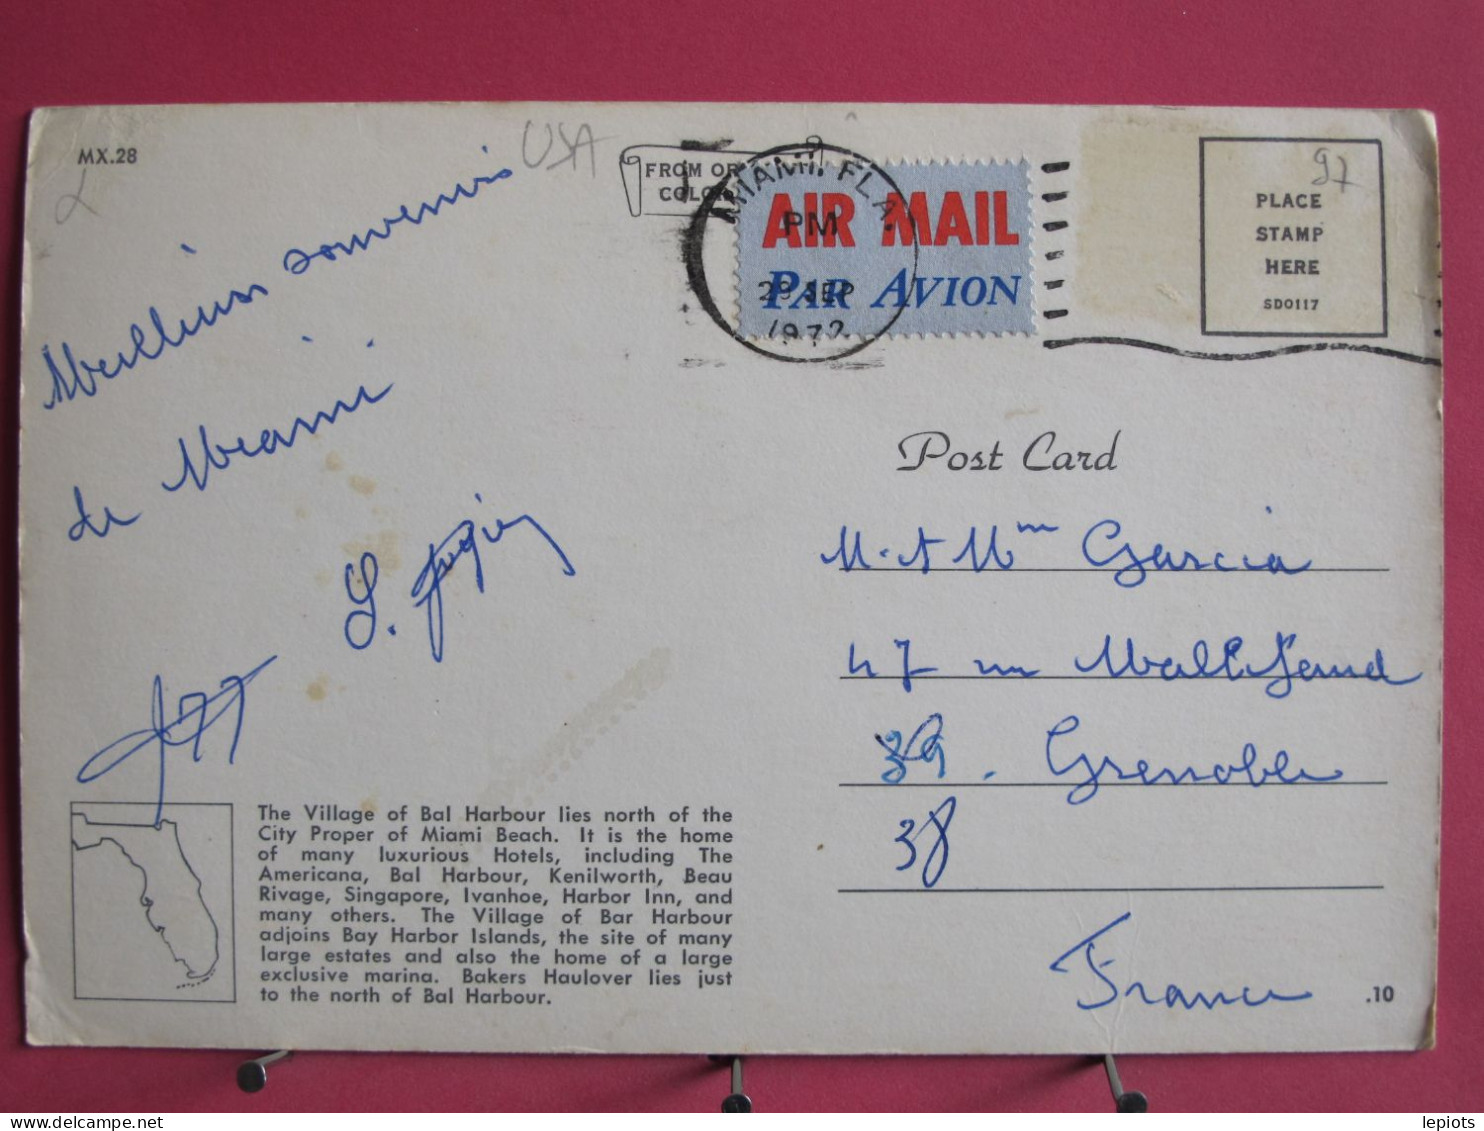 MX.28
USA
Meilleurs souvenirs
de Miami
FROM OR
COLO
MIAMI. FLA.
PM
29 SEP
1972
AIR MAIL
PAR AVION
97
PLACE
STAMP
HERE
SD0117
Post Card
M. et Mme Garcia
47 rue
39. Grenoble
38
France
The Village of Bal Harbour lies north of the
City Proper of Miami Beach. It is the home
of many luxurious Hotels, including The
Americana, Bal Harbour, Kenilworth, Beau
Rivage, Singapore, Ivanhoe, Harbor Inn, and
many others. The Village of Bar Harbour
adjoins Bay Harbor Islands, the site of many
large estates and also the home of a large
exclusive marina. Bakers Haulover lies just
to the north of Bal Harbour.
.10
lepiots